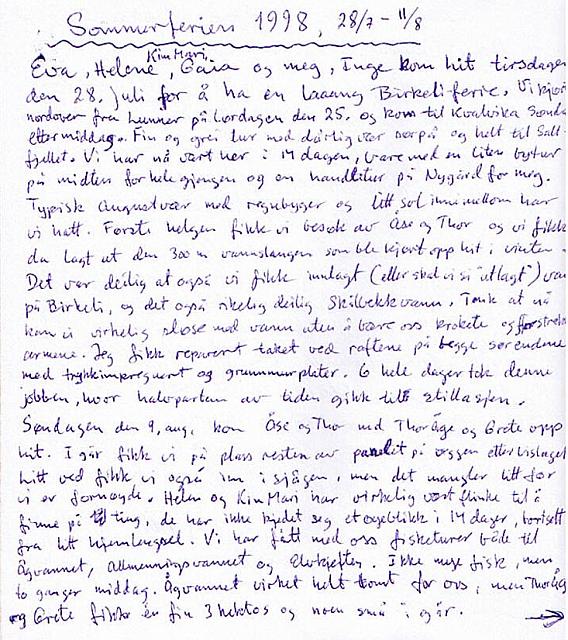 Sommerferien 1998, 28/7 - 11/8
Eva, Helene, Kim Mari, Gaia og meg, Inge kom hit tirsdagen
den 28. juli for å ha en laaang Birkeliferie. Vi kjørte
nordover fra Lunner på lørdagen den 25. og kom til Kvalvika søndag
ettermiddag. Fin og grei tur med dårlig vær nordpå og helt til Salt-
fjellet. Vi har nå vært her i 14 dagen, bare med en liten bytur
på midten for hele gjengen og en handletur på Nygård for meg.
Typisk augustvær med regnbyger og litt sol innimellom har
vi hatt. Første helgen fikk vi besøk av Åse og Thor og vi fikk
da lagt ut den 300 m vannslangen som ble kjørt opp hit i vinter.
Det var deilig at også vi fikk innlagt (eller skal vi si "utlagt") vann
på Birkeli, og det også skikkelig deilig Skilbekkvann. Tenk at nå
kan vi virkelig sløse med vann uten å bære oss krokete og forstrekke
armene. Jeg fikk reparert taket ved raftene på begge sørendene
med trykkimpregnert og grunnmurplater. 6 hele dager tok denne
jobben, hvor halvparten av tiden gikk til stillasjen.
Søndagen den 9. aug. kom Åse og Thor med Thoråge og Grete opp
hit. I går fikk vi på plass resten av panelet på veggen etter vislaget
litt ved fikk vi også inn i sjågen, men det mangler litt før
vi er fornøyde. Helen og Kim Mari har virkelig vært flinke til å
finne på ting, de har ikke kjedet seg et øyeblikk i 14 dager, bortsett
fra litt hjemlengsel. Vi har fått med oss fisketurer både til
Ågvannet, Allmenningsvannet og Elvkjeften. Ikke mye fisk, men
to ganger middag. Ågvannet virket helt tomt for oss, men Thoråge
og Grete fikk én fin 3 hektos og noen små i går.
→